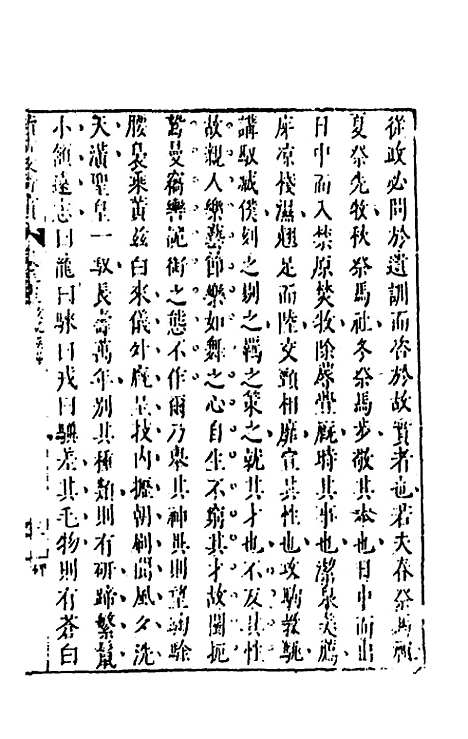 從政必問於遺訓而咨於故實者也若夫春祭馬祖
夏祭先牧秋祭馬社冬祭馬步敬其本也日中而出
日中而入禁原焚牧除蓐釁廐時其事也潔泉美薦
庠凉棧濕翹足而陸交頸相靡宜其性也攻駒教駣
講馭臧僕刻之剔之羈之策之就其才也不反其性
故親人樂藝節樂如舞之心自生不窮其才故闉扼
鷙曼竊轡詭銜之態不作爾乃舉其神異則望騊駼
騕褭乘黃茲白來儀外廐呈技內攊朝刷閶風夕洗
天潢聖皇一馭長壽萬年別其種類則有研蹄繁鬣
小領遠志曰龍曰騋曰戎曰驥差其毛物則有蒼白